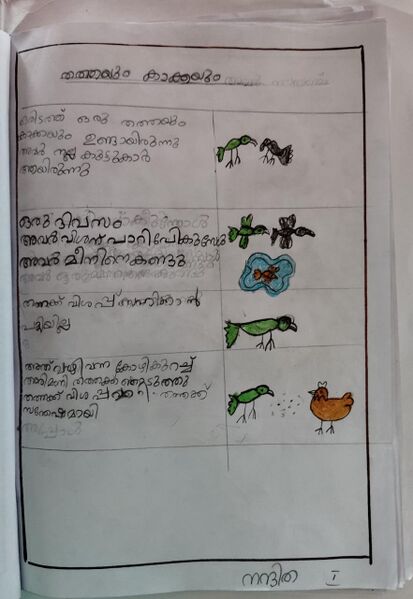 തത്തയും കാക്കയും
ഒരിടത്ത് ഒരു തത്തയും
കാക്കയും ഉണ്ടായിരുന്നു
അവർ നല്ല കൂട്ടുകാർ
ആയിരുന്നു
ഒരു ദിവസം
അവർ വിശന്ന് പാറിപേകുമ്പോ
അവർ മീനിനെകണ്ടു
തത്തക്ക് വിശപ്പ് സഹിക്കാൻ
പറ്റിയില്ല
അത് വഴി വന്ന കോഴികുറച്ച്
അരിമണി തത്തക്ക് കൊടുത്തു
തത്തക്ക് വിശപ്പ് മാറി. തത്തക്ക്
സന്തേഷമായി
നന്ദിത I